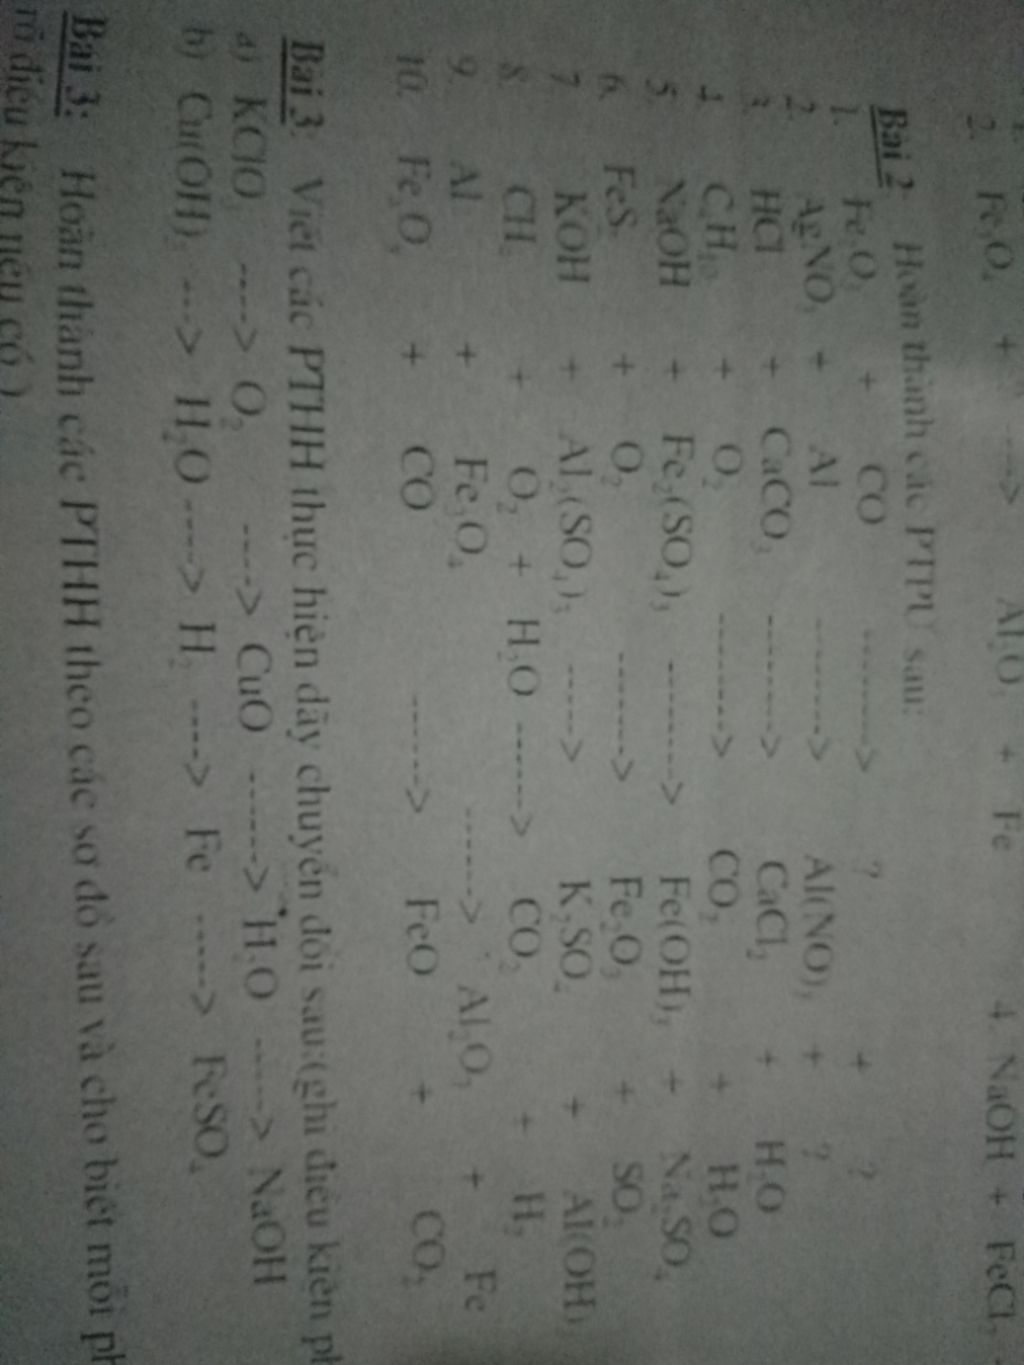 2. Fe₃O₄ + ---> Al₂O₃ + Fe 4. NaOH + FeCl₃
Bài 2 Hoàn thành các PTPƯ sau:
1. Fe₂O₃ + CO -------> ? + ?
2. AgNO₃ + Al -------> Al(NO₃)₃ + ?
3. HCl + CaCO₃ -------> CaCl₂ + H₂O
4. C₄H₁₀ + O₂ -------> CO₂ + H₂O
5. NaOH + Fe₂(SO₄)₃ -------> Fe(OH)₃ + Na₂SO₄
6. FeS₂ + O₂ -------> Fe₂O₃ + SO₂
7. KOH + Al₂(SO₄)₃ -----> K₂SO₄ + Al(OH)₃
8. CH₄ + O₂ + H₂O ------> CO₂ + H₂
9. Al + Fe₃O₄ ------> Al₂O₃ + Fe
10. Fe₂O₃ + CO ------> FeO + CO₂
Bài 3 Viết các PTHH thực hiện dãy chuyển đổi sau:(ghi điều kiện
a) KClO₃ ----> O₂ ----> CuO -----> H₂O -----> NaOH
b) Cu(OH)₂ ---> H₂O ----> H₂ ----> Fe -----> FeSO₄
Bài 3: Hoàn thành các PTHH theo các sơ đồ sau và cho biết mỗi
rõ điều kiện nếu có )